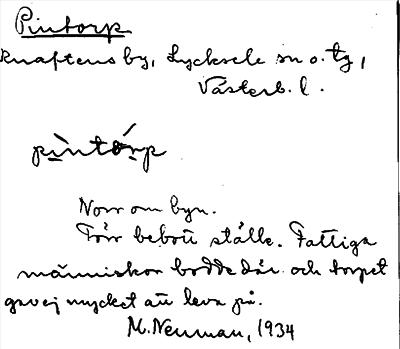 Pintorp
Knaftens by, Lycksele sn o. tg,
Västerb. l.
pìntórp
Norr om byn.
Förr bebott ställe. Fattiga
människor bodde där och torpet
gav ej mycket att leva på.
M. Neuman, 1934